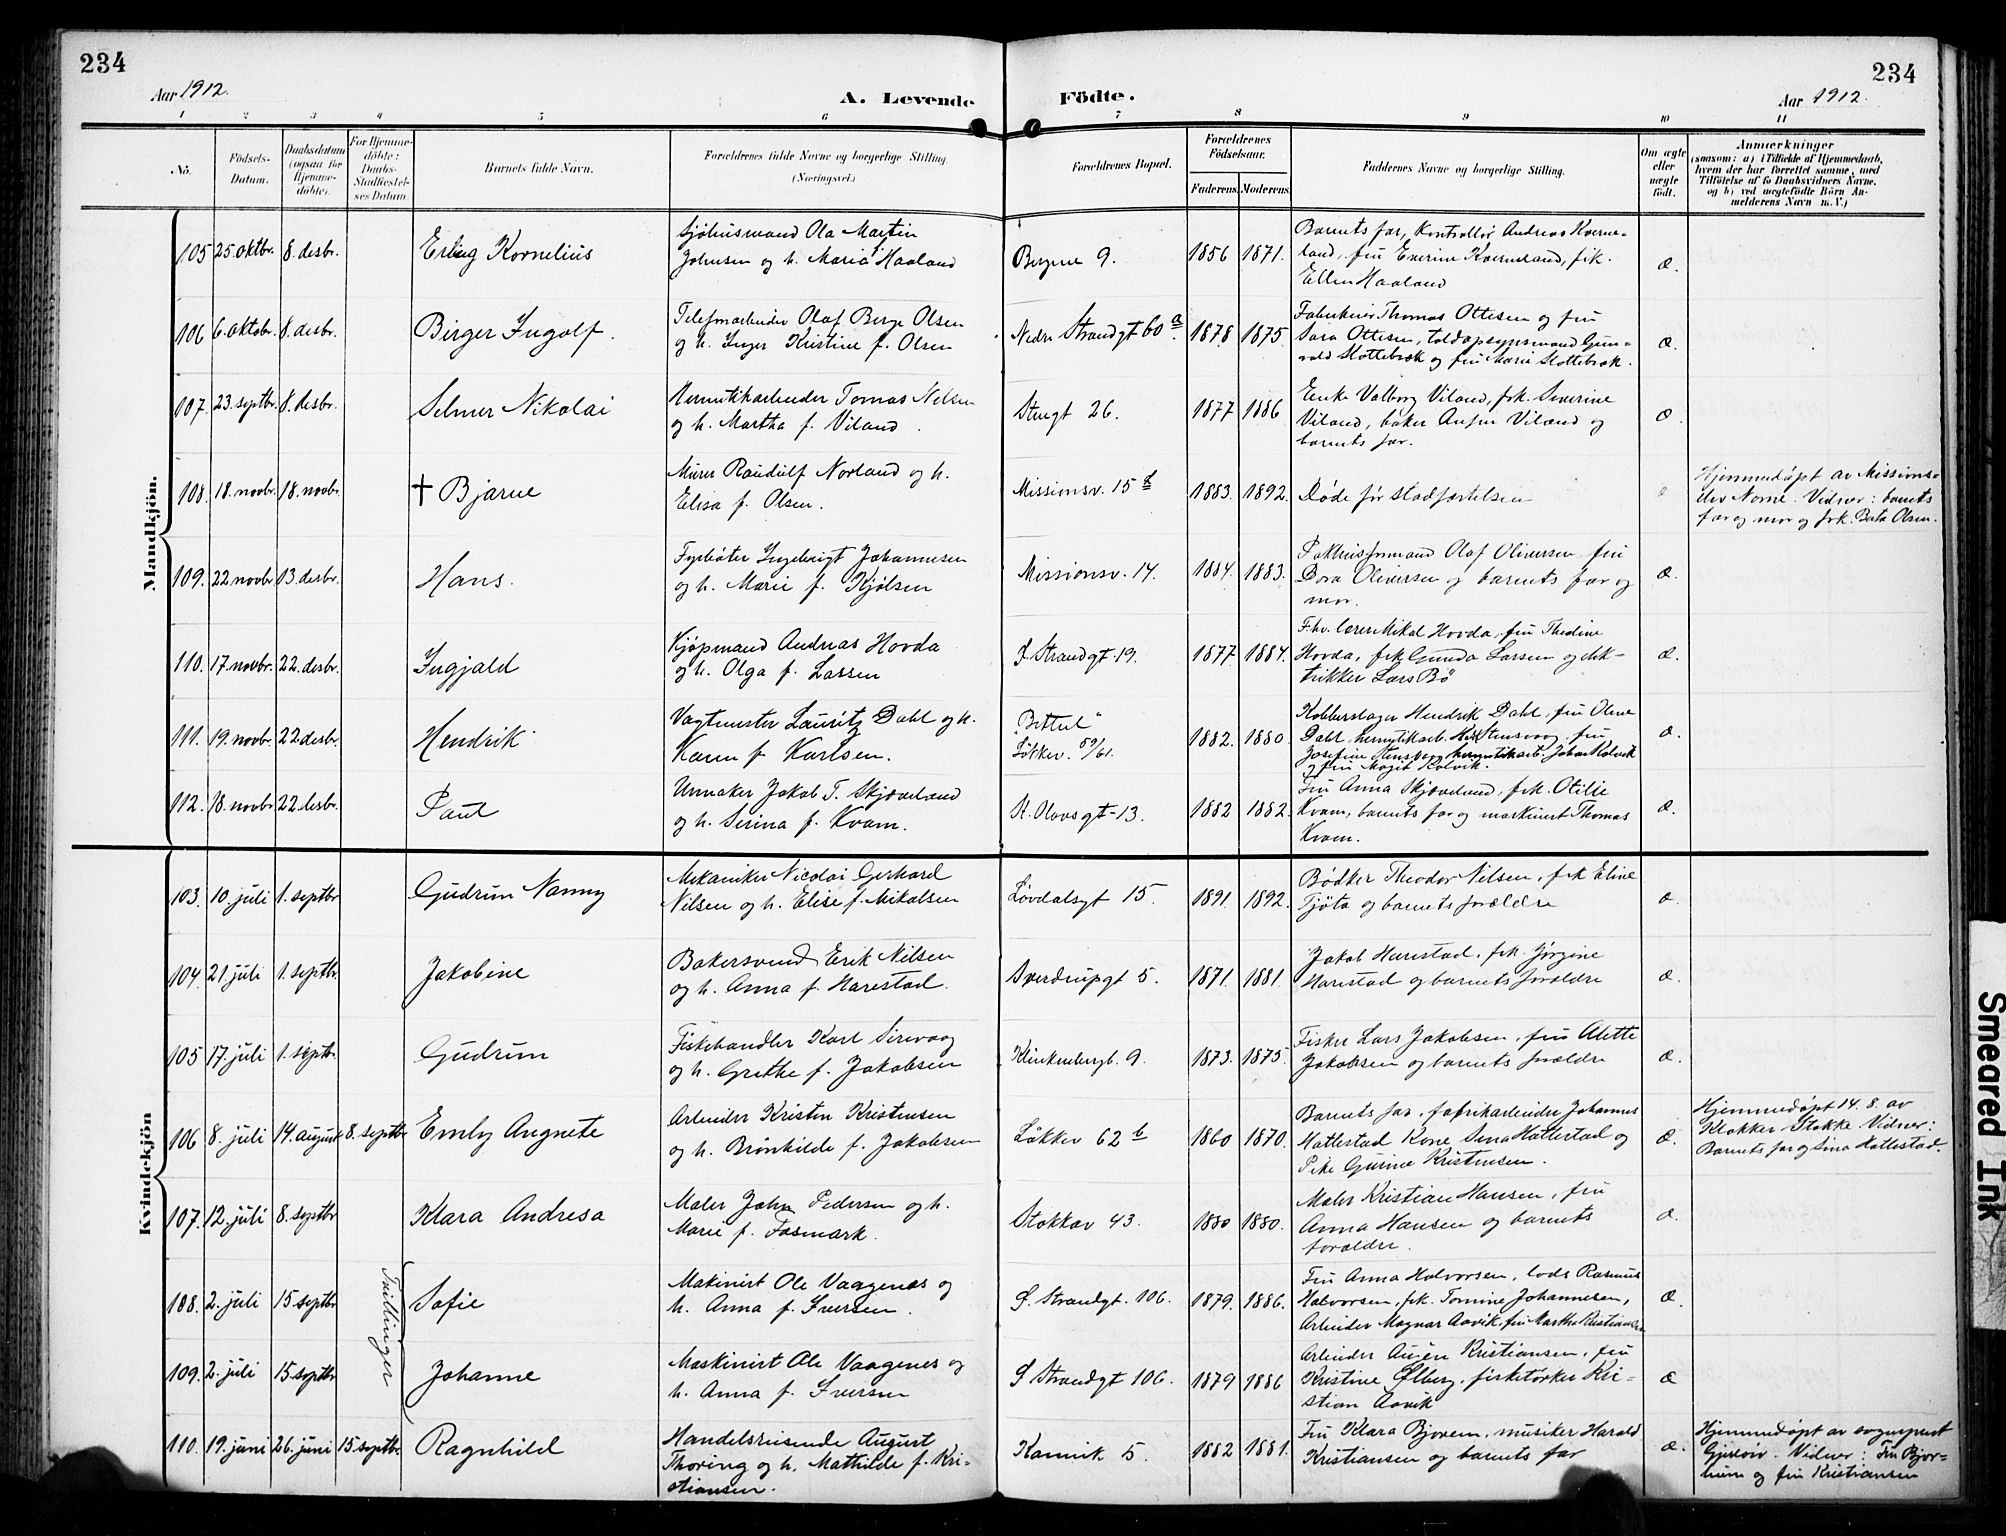 234
234
Aar 1912.
A. Levende Födte.
Aar 1912.
1 2 3 4 5 6 7 8 9 10 11
No.
Födsels-
Datum.
Daabsdatum
(ogsaa for
Hjemme-
döbte).
For Hjemme-
döbte:
Daabs-
Stadfæstel-
ses Datum.
Barnets fulde Navn.
Forældrenes fulde Navne og borgerlige Stilling.
(Næringsvei.)
Forældrenes Bopæl.
Forældrenes
Födselsaar.
Faderens. Moderens.
Faddernes Navne og borgerlige Stilling.
Om ægte
eller
uægte
født.
Anmærkninger
(saasom: a) i Tilfælde af Hjemmedaab,
hvem der har forrettet samme, med
Tilföielse af to Daabsvidners Navne.
og b) ved uægtefödte Börn An-
melderens Navn m. V.)
Mandkjön.
105 25 oktbr. 8. desbr.
Erling Kornelius
Sjøhusmand Ola Martin
Johnsen og h. Maria Haaland
Bergene 9.
1856 1871.
Barnets far, kontrollør Andreas Kverne-
land, fru Everine Kverneland, frk.
Ellen Haaland
Æ.
106 6. oktobr. 8. desbr.
Birger Ingolf.
Telefonarbeider Olaf Berge Olsen
og h. Inger Kristine f. Olsen
Nedre Strandgt 60 a
1878 1875.
Fabrikeier Thomas Ottesen og fru
Sara Ottesen, toldopsynsmand Gun-
vald Slottebrek og fru Marie Slottebrok.
Æ.
107. 23. septbr. 8. desbr.
Selmer Nikolai
Hermetikarbeider Tomas Nelsen
og h. Martha f. Viland.
Stengt 26.
1877 1886
Enke Valborg Viland, frk. Severine
Viland, baker Ansfin Viland og
barnets far.
Æ.
108. 18. novbr. 18. novbr.
† Bjarne
Murer Raudulf Norland og h.
Elisa f. Olsen.
Missionsv. 15 b
1883. 1892.
Døde før stadfæstelsen
Hjemmedøpt av Missions-
elev Nome. Vidner: barnets
far og mor og frk. Berta Olsen.
109. 22. novbr 13. desbr.
Hans.
Fyrbøter Ingebrigt Johannesen
og h. Marie f. Kjølsen
Missionsv. 14.
1884. 1883.
Pakhusformand Olaf Oliversen, fru
Dora Oliversen og barnets far og
mor.
Æ.
110. 17. novbr. 22. desbr.
Ingjald
Kjøpmand Andreas Hovda
og h. Olga f. Lassen
Ø Strandgt 19.
1877 1884.
Fhv. lærer Mikal Hovda, fru Thedine
Hovda, frk Gunda Larsen og elek-
trikker Lars Bø
Æ.
111. 19. novbr. 22. desbr.
Hendrik
Vagtmester Lauritz Dahl og h.
Karen f. Karlsen.
"Bettel"
Løkkev. 59/61.
1882. 1880.
Kobberslager Hendrik Dahl, fru Oline
Dahl, hermetikarb. Stensvaag, fru
Josefine Stensvaag hermetikarb. Johan Kolvik
og fru Magit Kolvik.
Æ.
112. 18. novbr 22. desbr
Paul
Urmaker Jakob T. Skjæveland
og h. Serina f. Kvam.
St. Olavsgt-13.
1882 1882.
Fru Anna Skjæveland, frk. Otilie
Kvam, barnets far og maskinist Thomas
Kvam.
Æ.
Kvindekjön
103. 10. juli 1. septbr
Gudrun Nanny
Mekaniker Nicolai Gerhard
Nilsen og h. Elise f. Mikalsen
Løvdalsgt 15.
1891. 1892.
Bødker Theodor Nilsen, frk Eline
Tjøta og barnets forældre
Æ.
104. 21. juli 1. septbr
Jakobine
Bakersvend Erik Nilsen
og h. Anna f. Harestad.
Sverdrupgt 5.
1871. 1881.
Jakob Harestad, frk. Jørgine
Harestad og barnets forældre
Æ.
105 17. juli 1. septbr.
Gudrun
Fiskehandler Karl Sirevaag
og h. Grethe f. Jakobsen
Klinkenbergt. 9.
1873. 1875.
Fisker Lars Jakobsen, fru Alette
Jakobsen og barnets forældre
Æ.
106 8. juli 14. august 8. septbr
Emly Augnete
Arbeider Kristen Kristensen
og h. Brønhilde f. Jakobsen
Løkkev 62 b
1860 1870.
Barnets far, fabrikarbeider Johannes
Hatlestad Kone Sina Hatlestad og
Pike Gurine Kristensen.
Æ.
Hjemmedøpt 14. 8. av
Klokker Stokke Vidner:
Barnets far og Sina Hatlestad.
107. 12. juli 8. septbr
Klara Andrea
Maler John Pedersen og h.
Marie f. Fosmark.
Stokkav 43.
1880 1880.
Maler Kristian Hansen, fru
Anna Hansen og barnets
forældre.
Æ.
Tvillinger
108. 2. juli 15. septbr
Sofie
Makinist Ole Vaagenes og
h. Anna f. Iversen.
Ø. Strandgt. 106.
1879. 1886.
Fru Anna Halvorsen, lods Rasmus
Halvorsen, frk. Tomine Johannesen,
Arbeider Magnar Aavik, fru Martha Kristiansen
Æ.
109. 2. juli 15. septbr
Johanne
Maskinist Ole Vaagenes og
h. Anna f. Iversen
Ø Strandgt 106.
1879 1886
Arbeider Kristiansen, fru
Kristine Ølberg, fisketørker Kri-
stian Aavik
Æ
110. 19. juni 26. juni 15. septbr
Ragnhild
Handelsreisende August
Thoring og h. Mathilde f. Kri-
stiansen.
Kannik 5.
1882 1881.
Fru Klara Bjorem, musiker Harald
Kristiansen og barnets far
Æ.
Hjemmedøpt av sogneprest
Gjerløv. Vidner: Fru Bjor-
hum og fru Kristiansen
Smeared Ink